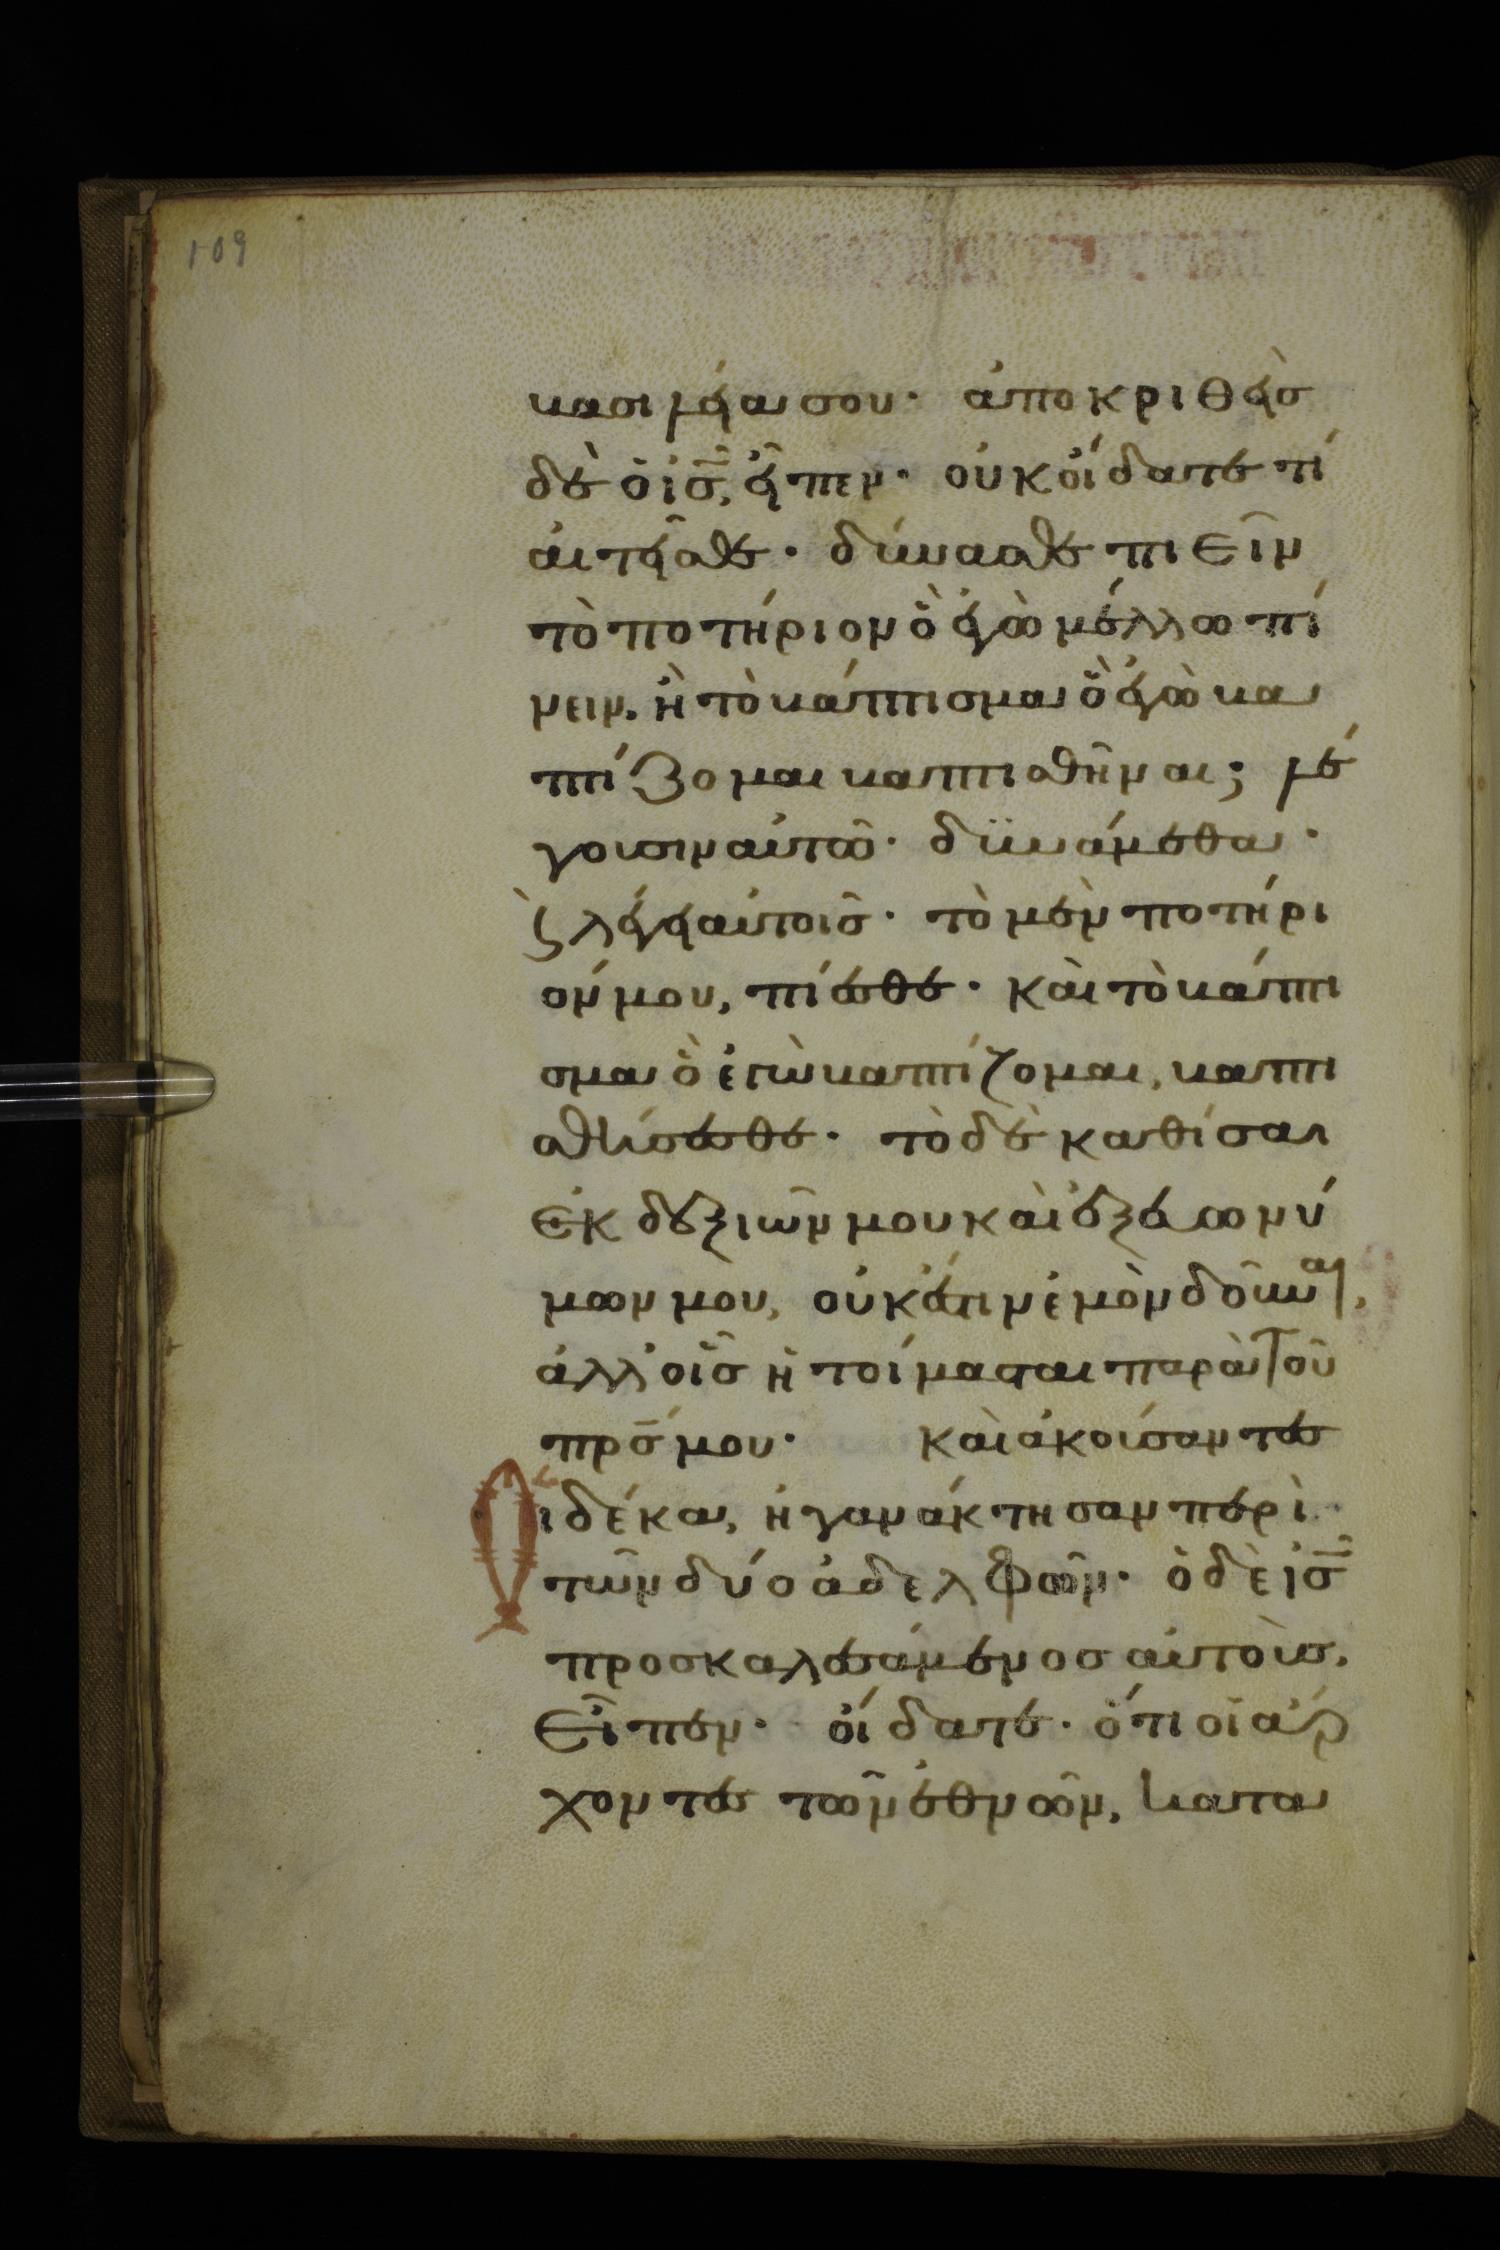 109
βασιλεία σου· ἀποκριθεὶσ
δὲ ὁ ἰ̅σ̅, εἶπεν· οὐκ οἴδατε τί
αἰτεῖσθε· δύνασθε πιεῖν
τὸ ποτήριον ὃ ἐγὼ μέλλω πί
νειν. ἢ τὸ βάπτισμα ὃ ἐγὼ βα
πτίζομαι βαπτισθῆναι; λέ
γουσιν αὐτῶ· δϋνάμεθα·
ϗ̀ λέγει αὐτοῖσ· τὸ μὲν ποτήρι
όν μου, πίεσθε· καὶ τὸ βάπτι
σμα ὃ ἐγὼ βαπτίζομαι, βαπτι
σθήσεσθε· τὸ δὲ καθίσαι
ἐκ δεξιῶν μου καὶ ἐξ εὐωνύ
μων μου, οὐκ ἔστιν ἐμὸν δοῦναι,
ἀλλ' οἷσ ἡτοίμασται παρὰ τοῦ
πρ̅σ̅ μου· καὶ ἀκούσαντεσ
Οἱ δέκα, ἠγανάκτησαν περὶ
τῶν δύο ἀδελφῶν· ὁ δὲ ἰ̅σ̅
προσκαλεσάμενοσ αὐτοὺσ,
εἶπεν· οἴδατε· ὅτι οἱ ἄρ
χοντεσ τῶν ἐθνῶν, κατα